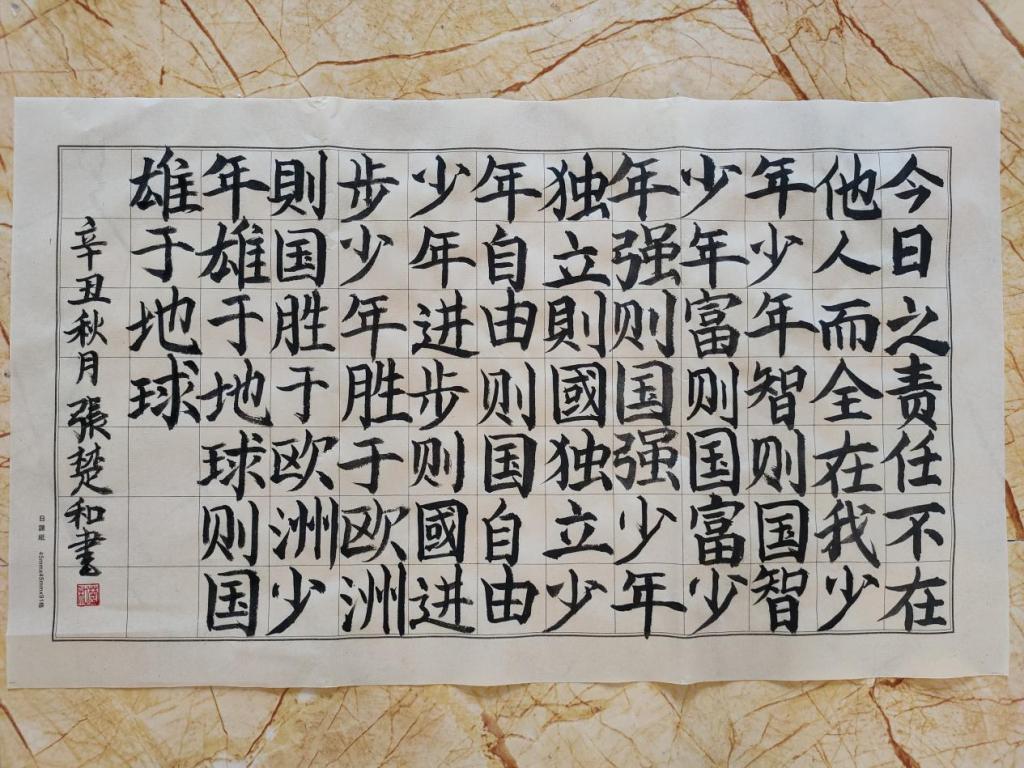 今日之责任不在
他人而全在我少
年少年智则国智
少年富则国富少
年强则国强少年
独立則國独立少
年自由则国自由
少年进步则國进
步少年胜于欧洲
則国胜于欧洲少
年雄于地球则国
雄于地球
辛丑秋月 張楚和書
日課紙 45mmx45mmx91格